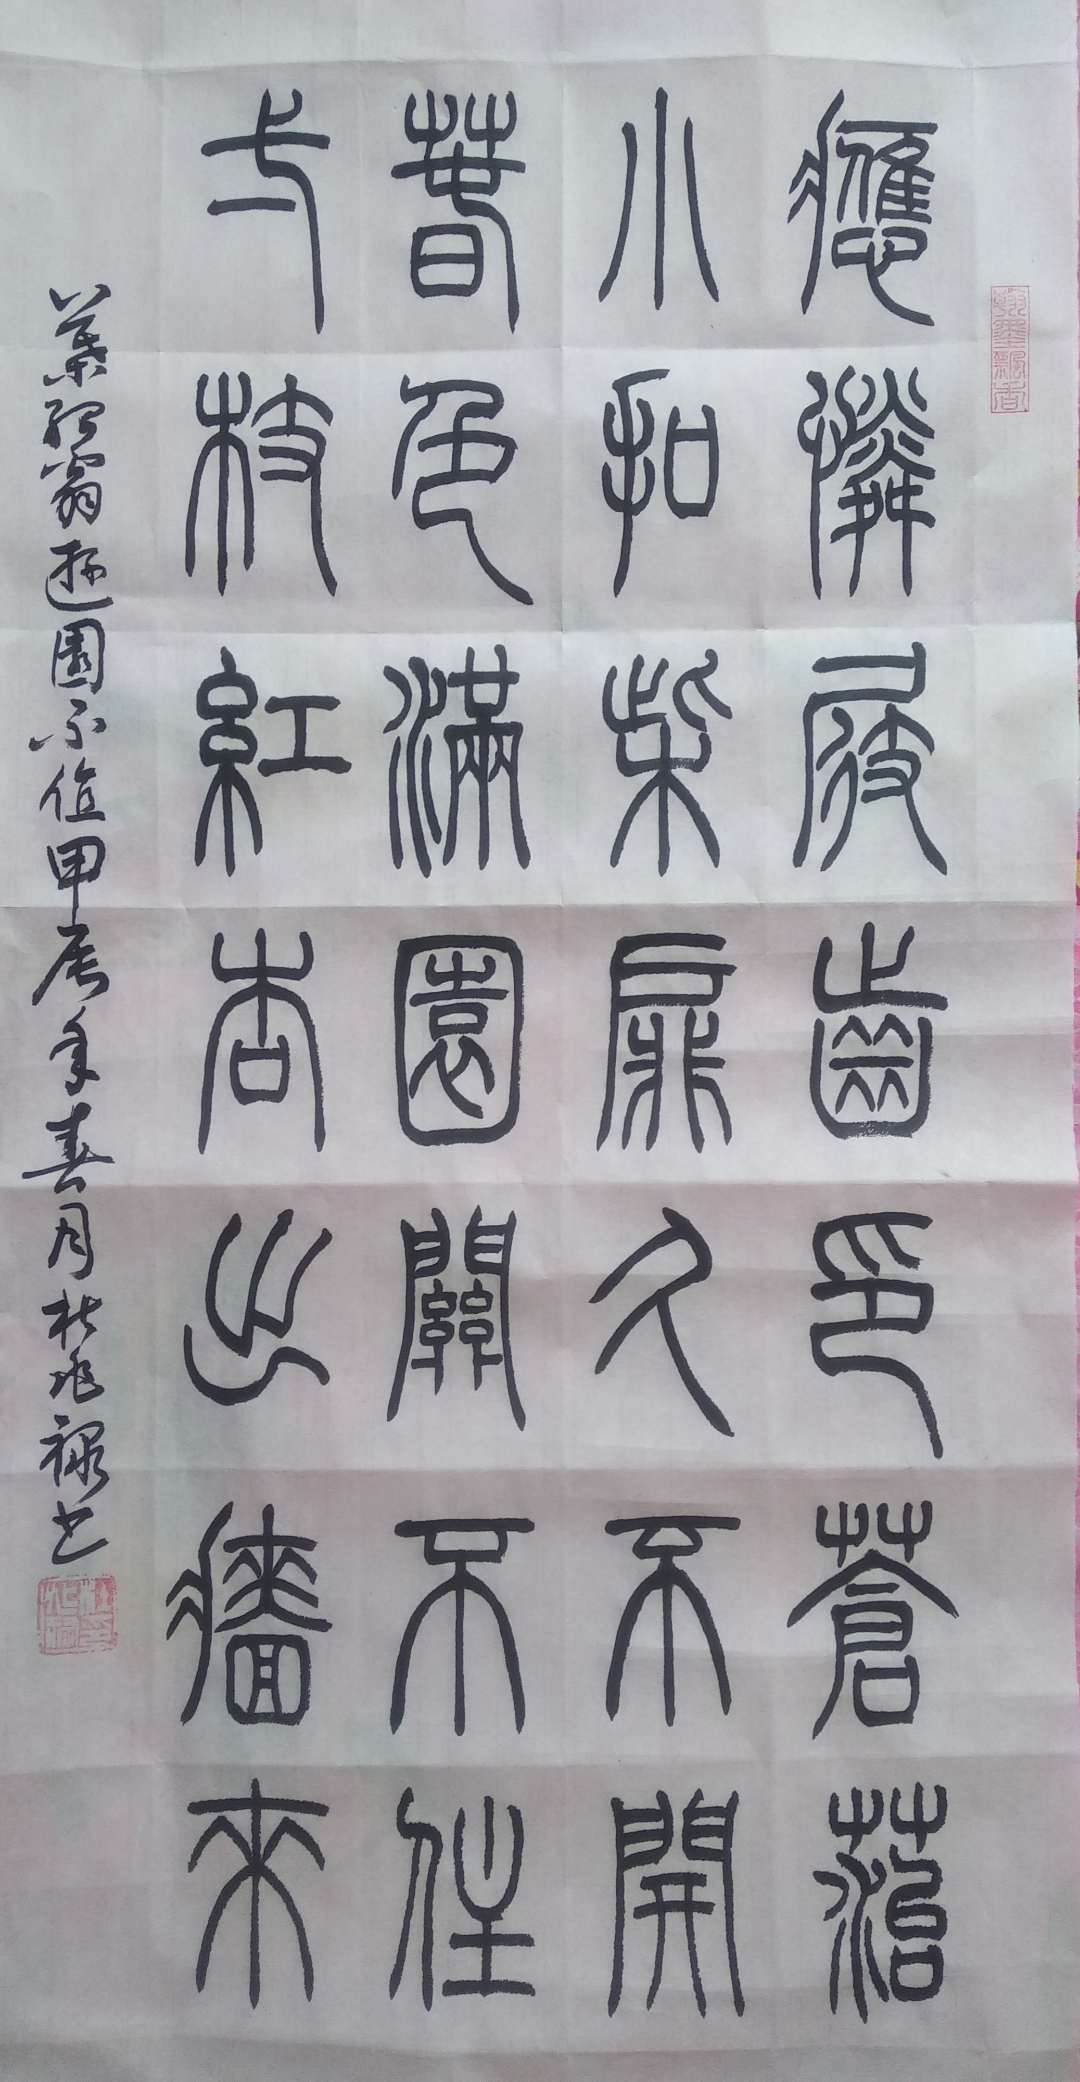 翰墨飄香
應憐屐齒印蒼菭
小扣柴扉久不開
春色滿園關不住
弌枝紅杏出牆來
葉紹翁遊園不值甲辰年春月杜兆祿書